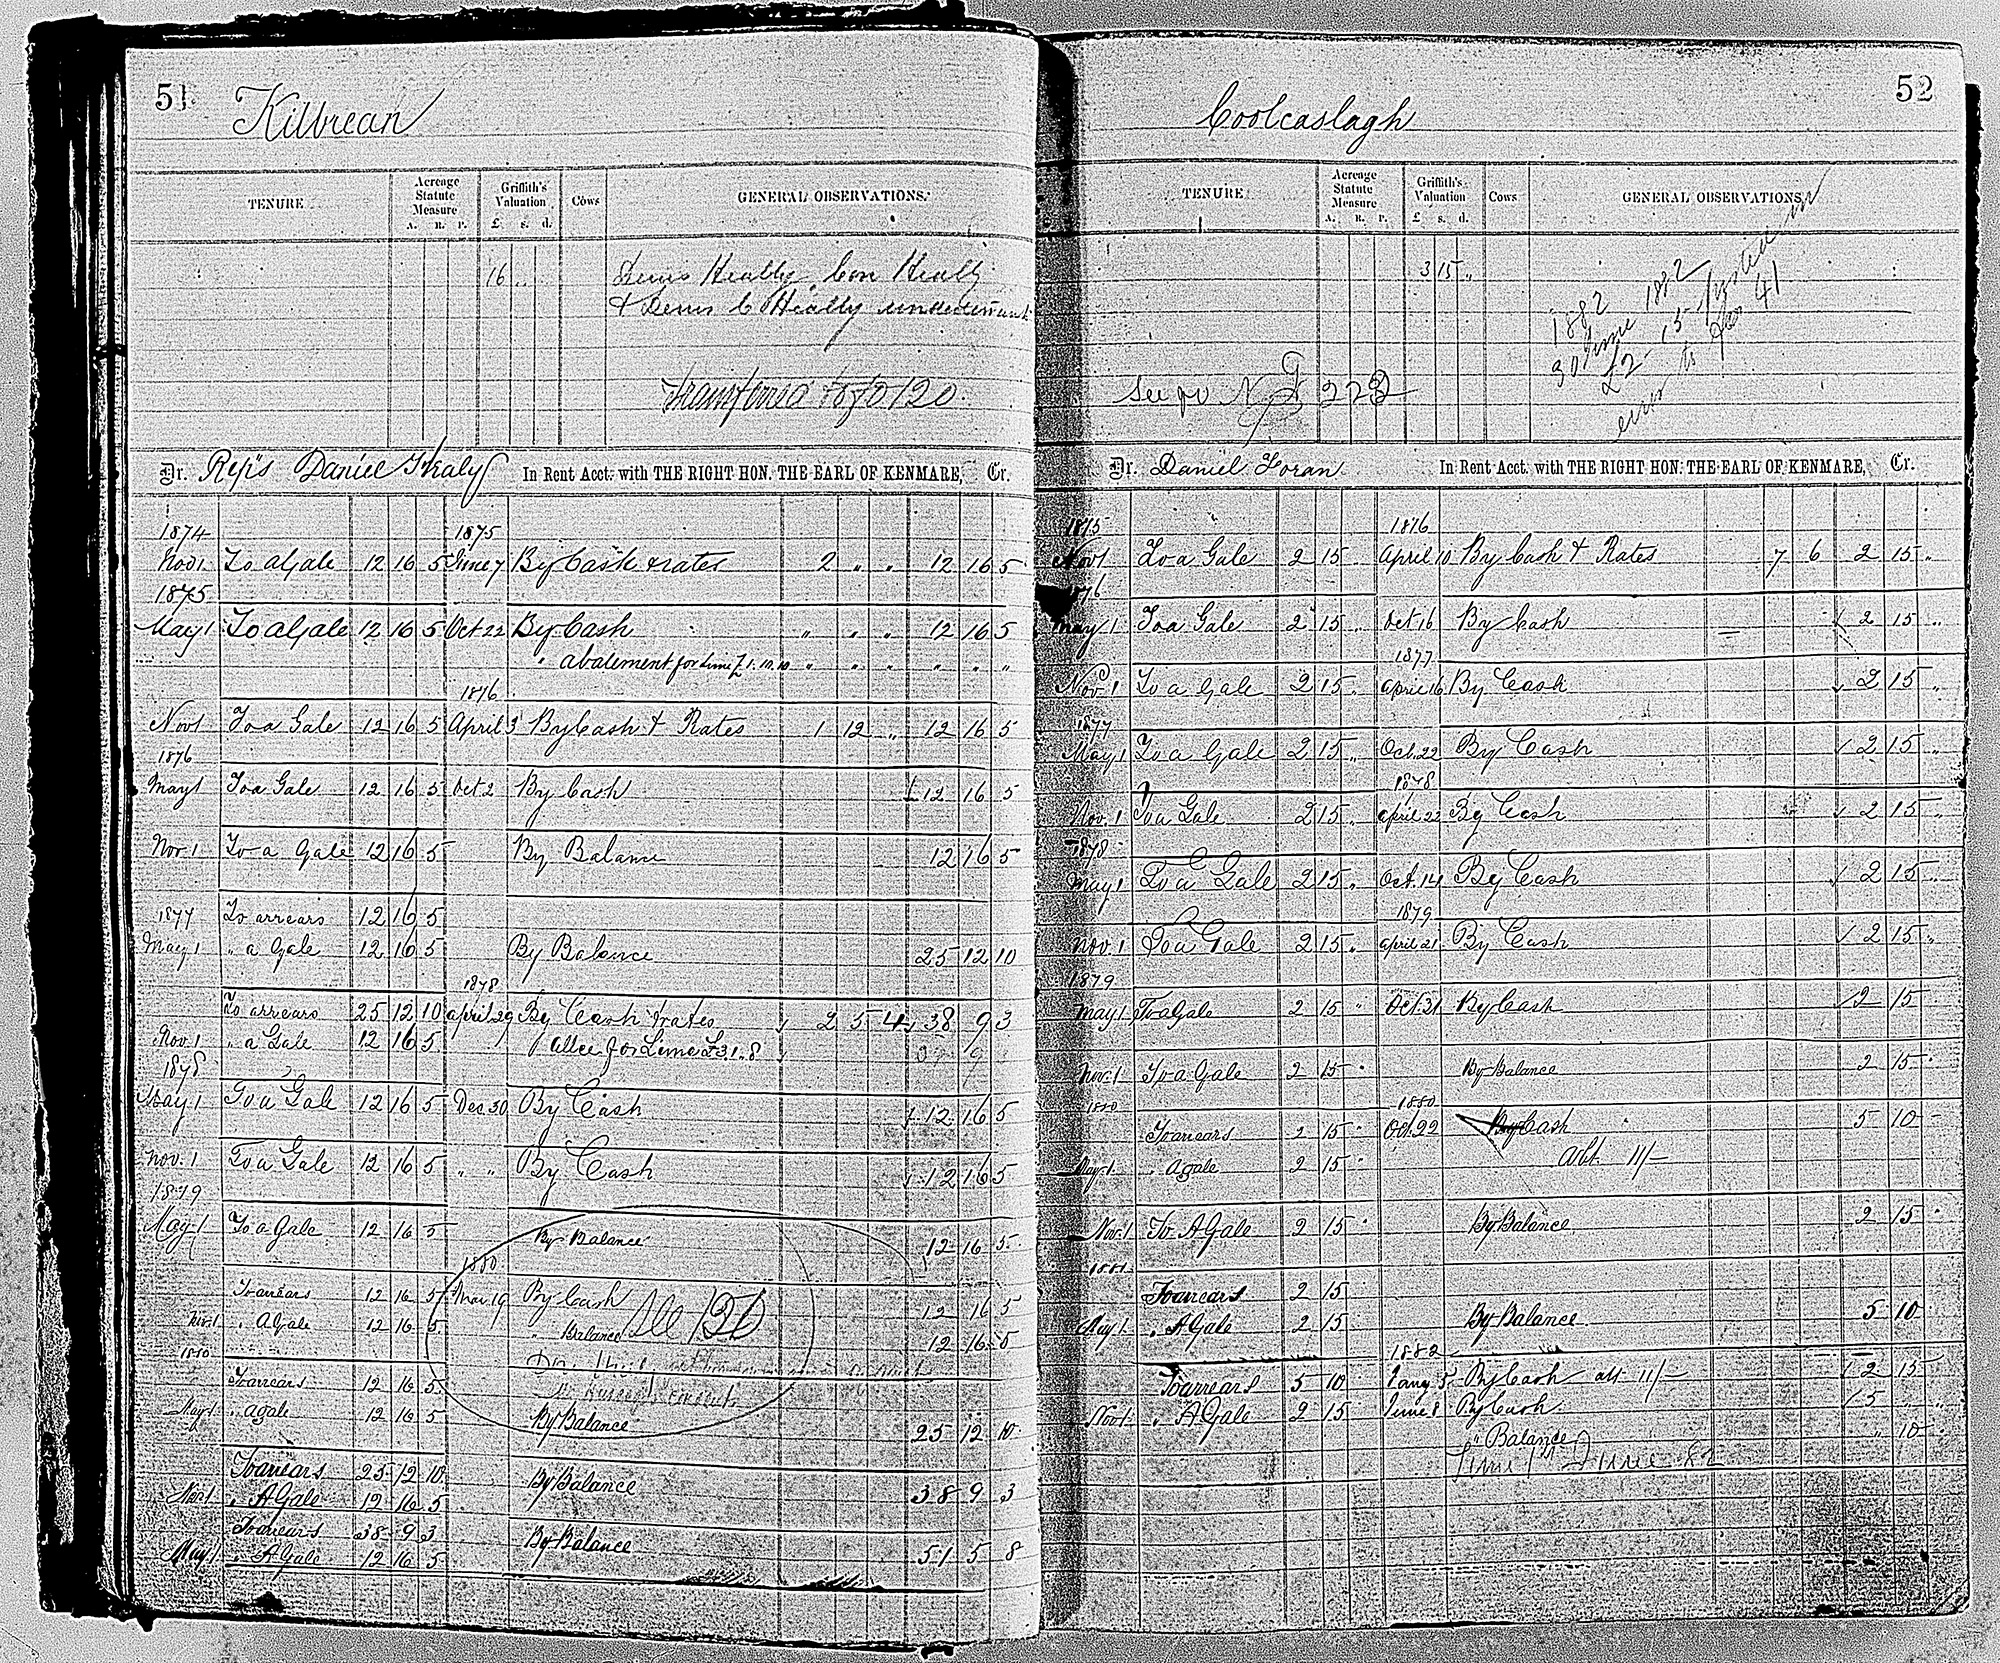 51
Kilbrean
TENURE
Acreage Statute Measure
A. R. P.
Griffith's Valuation
£ s. d.
Cows
GENERAL OBSERVATIONS.
16 „
Denis Healy, Con Healy
& Denis C Healy
Transferred to fo 120
Dr. Reps Daniel Healy In Rent Acct. with THE RIGHT HON. THE EARL OF KENMARE, Cr.
1874 1875
Nov 1 To a Gale 12 16 5 June 7 By Cash & rates 2 „ „ 12 16 5
1875
May 1 To a Gale 12 16 5 Oct 22 By Cash „ „ „ 12 16 5
„ abatement for lime £1.10.10 „ „ „ „ „ „
1876
Nov 1 To a Gale 12 16 5 April 3 By Cash & Rates 1 12 „ 12 16 5
1876
May 1 To a Gale 12 16 5 Oct 2 By Cash 12 16 5
Nov. 1 To a Gale 12 16 5 By Balance 12 16 5
1877 To arrears 12 16 5
May 1 „ a Gale 12 16 5 By Balance 25 12 10
1878
To arrears 25 12 10 april 29 By Cash & rates 2 5 4 38 9 3
Nov. 1 „ a Gale 12 16 5 allce for Lime £3.1.8
1878
May 1 To a Gale 12 16 5 Dec 30 By Cash 12 16 5
Nov. 1 To a Gale 12 16 5 „ „ By Cash 12 16 5
1879
May 1 To a Gale 12 16 5 By Balance 12 16 5
1880
To arrears 12 16 5 Mar. 19 By Cash 12 16 5
Nov. 1 „ A Gale 12 16 5 „ Balance See 120 12 16 5
1880
To arrears 12 16 5
May 1 „ a gale 12 16 5 By Balance 25 12 10
To arrears 25 12 10 By Balance 38 9 3
Nov 1 „ A Gale 12 16 5
To arrears 38 9 3 By Balance 51 5 8
May 1 „ A Gale 12 16 5
52
Coolcaslagh
TENURE
Acreage Statute Measure
A. R. P.
Griffith's Valuation
£ s. d.
Cows
GENERAL OBSERVATIONS
3 15 „
1882
30 June 1882
£2-15-
error to
41
See
Dr. Daniel Foran In Rent Acct. with THE RIGHT HON. THE EARL OF KENMARE, Cr.
1875 1876
Nov 1 To a Gale 2 15 „ April 10 By Cash & Rates 7 6 2 15 „
1876
May 1 To a Gale 2 15 „ Oct 16 By Cash 2 15 „
1877
Nov. 1 To a Gale 2 15 „ april 16 By Cash 2 15 „
1877
May 1 To a Gale 2 15 „ Oct. 22 By Cash 2 15 „
1878
Nov. 1 To a Gale 2 15 „ april 22 By Cash 2 15 „
1878
May 1 To a Gale 2 15 „ Oct. 14 By Cash 2 15 „
1879
Nov. 1 To a Gale 2 15 „ april 21 By Cash 2 15 „
1879
May 1 To a Gale 2 15 „ Oct. 31 By Cash 2 15
Nov. 1 To a Gale 2 15 „ By Balance 2 15 „
1880 1880
To arrears 2 15 „ Oct. 22 By Cash 5 10 -
May 1 „ A gale 2 15 „ Abt. 11/-
Nov. 1 To A Gale 2 15 „ By Balance 2 15 „
1881
To arrears 2 15
May 1 „ A Gale 2 15 By Balance 5 10
1882
To arrears 5 10 Jany 5 By Cash abt 11/- 2 15
Nov 1 „ A Gale 2 15 June 8 By Cash 5 „ „
„ Balance „ 10 „
June 82